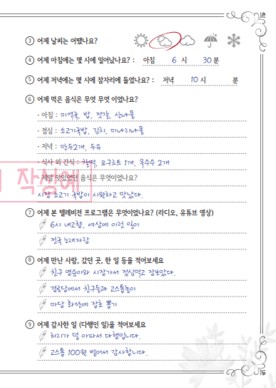 ③ 어제 날씨는 어땠나요?
④ 어제 아침에는 몇 시에 일어났나요? : 아침 6 시 30 분
⑤ 어제 저녁에는 몇 시에 잠자리에 들었나요? : 저녁 10 시 분
⑥ 어제 먹은 음식은 무엇 무엇 이었나요?
- 아침 : 미역국, 밥, 젓갈, 산나물
- 점심 : 소고기국밥, 김치, 미나리나물
- 저녁 : 만두2개, 두유
- 식사 외 간식 : 요구르트 1개, 옥수수 2개
음식은 무엇이었나요?
시장 소고기 국밥이 시원하고 맛났다.
⑦ 어제 본 텔레비전 프로그램은 무엇이었나요? (라디오, 유튜브 영상)
6시 내고향, 세상에 이런 일이
전국노래자랑
⑧ 어제 만난 사람, 갔던 곳, 한 일 등을 적어보세요
친구 명숙이와 시장가서 점심먹고 장봤다.
경로당에서 친구들과 고스톱놀이
마당 화단에 잡초 뽑기
⑨ 어제 감사한 일 (다행인 일)을 적어보세요
허리가 덜 아파서 다행입니다.
고스톱 100원 벌어서 감사합니다.